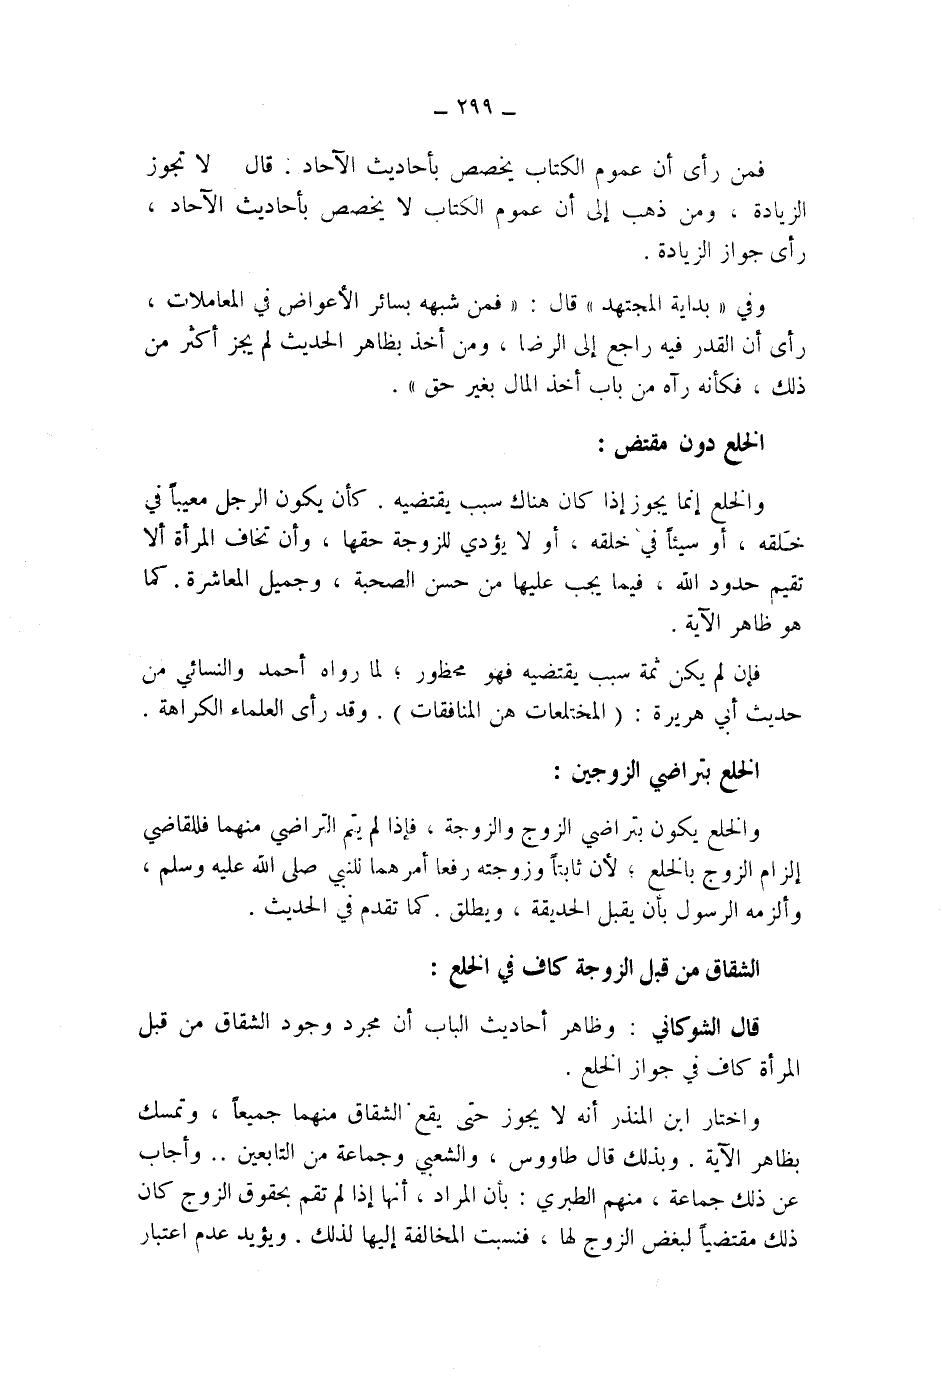 ــ ٢٩٩ ــ
فمن رأى أن عموم الكتاب يخصص بأحاديث الآحاد . قال لا تجوز
الزيادة ، ومن ذهب إلى أن عموم الكتاب لا يخصص بأحاديث الآحاد ،
رأى جواز الزيادة .
وفي « بداية المجتهد » قال : « فمن شبهه بسائر الأعواض في المعاملات ،
رأى أن القدر فيه راجع إلى الرضا ، ومن أخذ بظاهر الحديث لم يجز أكثر من
ذلك ، فكأنه رآه من باب أخذ المال بغير حق » .
الخلع دون مقتض :
والخلع إنما يجوز إذا كان هناك سبب يقتضيه . كأن يكون الرجل معيباً في
خَلقه ، أو سيئاً في خلقه ، أو لا يؤدي للزوجة حقها ، وأن تخاف المرأة ألا
تقيم حدود الله ، فيما يجب عليها من حسن الصحبة ، وجميل المعاشرة . كما
هو ظاهر الآية .
فإن لم يكن ثمة سبب يقتضيه فهو محظور ؛ لما رواه أحمد والنسائي من
حديث أبي هريرة : ( المختلعات هن المنافقات ) . وقد رأى العلماء الكراهة .
الخلع بتراضي الزوجين :
والخلع يكون بتراضي الزوج والزوجة ، فإذا لم يتم التراضي منهما فللقاضي
إلزام الزوج بالخلع ؛ لأن ثابتاً وزوجته رفعا أمرهما للنبي صلى الله عليه وسلم ،
وألزمه الرسول بأن يقبل الحديقة ، ويطلق . كما تقدم في الحديث .
الشقاق من قبل الزوجة كاف في الخلع :
قال الشوكاني : وظاهر أحاديث الباب أن مجرد وجود الشقاق من قبل
المرأة كاف في جواز الخلع .
واختار ابن المنذر أنه لا يجوز حتى يقع الشقاق منهما جميعاً ، وتمسك
بظاهر الآية . وبذلك قال طاووس ، والشعبي وجماعة من التابعين .. وأجاب
عن ذلك جماعة ، منهم الطبري : بأن المراد ، أنها إذا لم تقم بحقوق الزوج كان
ذلك مقتضياً لبغض الزوج لها ، فنسبت المخالفة إليها لذلك . ويؤيد عدم اعتبار